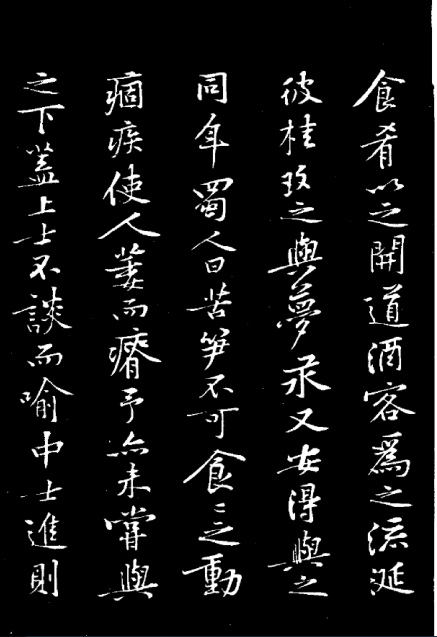 食肴以之開道酒客為之流涎
彼桂玫之與夢永又安得與之
同年蜀人曰苦筍不可食〻之動
痼疾使人萎而瘠予亦未嘗與
之下蓋上士不談而喻中士進則